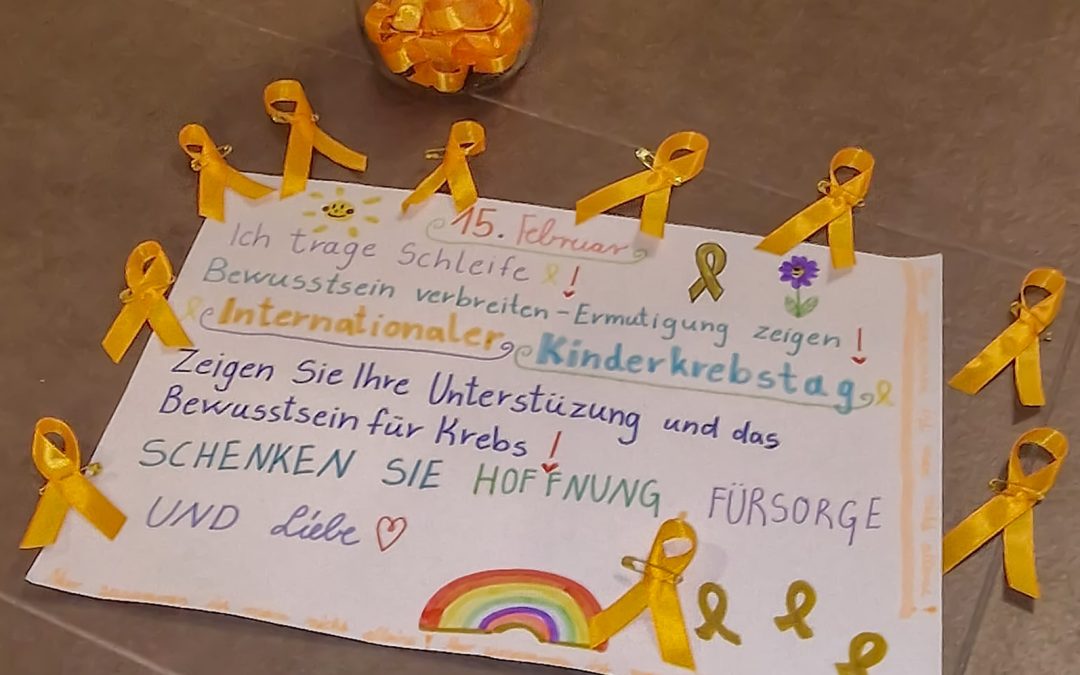 15. Februar
Ich trage Schleife !
Bewusstsein verbreiten - Ermutigung zeigen !
Internationaler Kinderkrebstag
Zeigen Sie Ihre Unterstüzung und das
Bewusstsein für Krebs !
SCHENKEN SIE HOFFNUNG, FÜRSORGE
UND Liebe